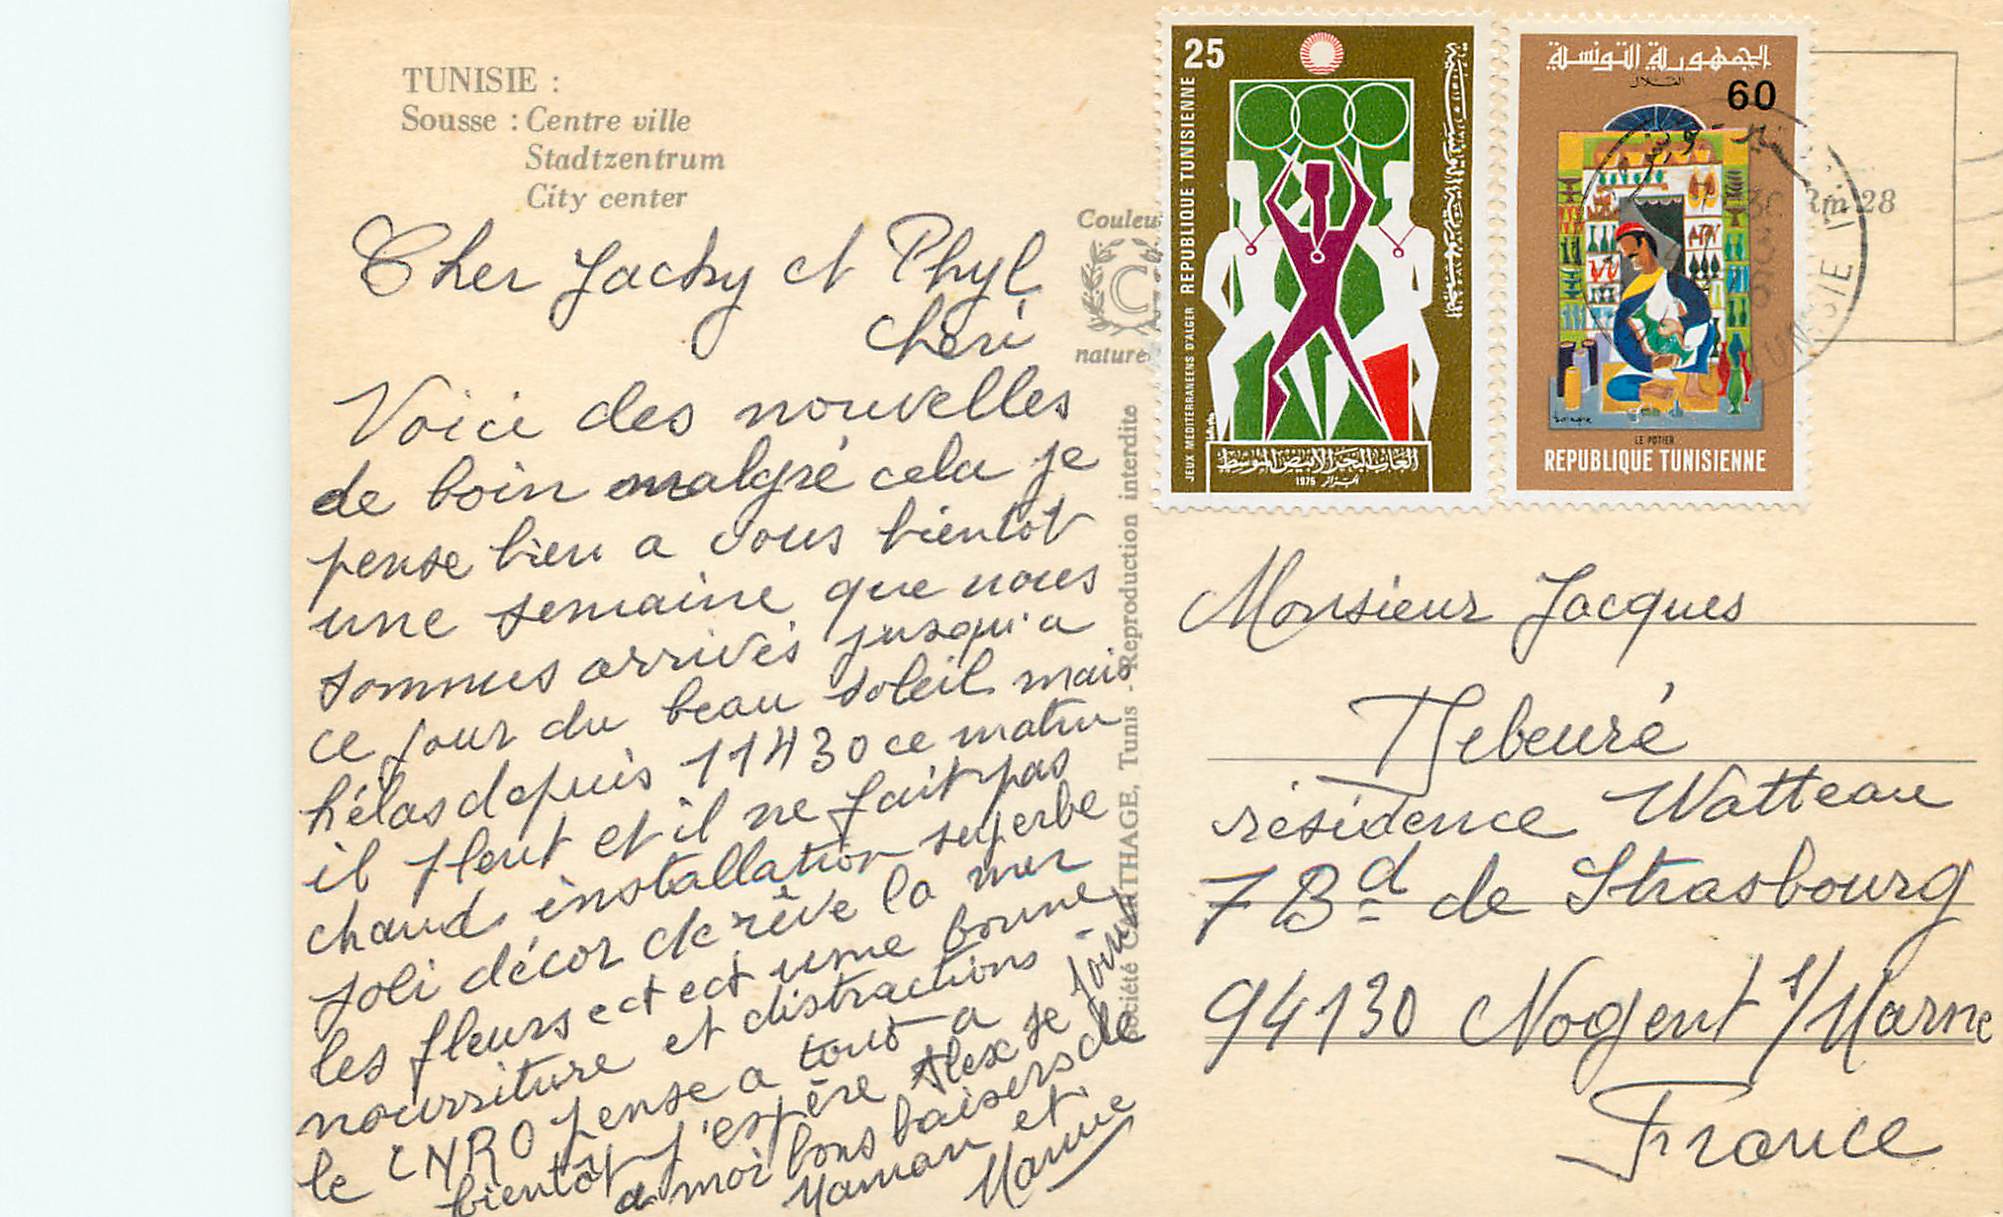 TUNISIE :
Sousse : Centre ville
Stadtzentrum
City center
Cher Jacky et Phyl
cheri
Voici des nouvelles
de loin malgré cela je
pense bien a vous bientot
une semaine que nous
sommes arrivés jusqu'a
ce jour du beau soleil mais
hélas depuis 11H30 ce matin
il pleut et il ne fait pas
chaud installation superbe
joli décor de rêve la mer
les fleurs ect ect une bonne
nourriture et distractions
le CNRO pense a tout a
bientôt j'espère Alex se joint
a moi bons baisers de
Maman et
Mamie
Couleurs
C
nature
Société CARTHAGE, Tunis - Reproduction interdite
25
REPUBLIQUE TUNISIENNE
JEUX MEDITERRANEENS D'ALGER
الجمهورية التونسية
ألعاب البحر الأبيض المتوسط
الجزائر 1975
الجمهورية التونسية
القلال
60
LE POTIER
REPUBLIQUE TUNISIENNE
Rm 28
TUNISIE
Monsieur Jacques
Debeuré
résidence Watteau
7 Bd de Strasbourg
94130 Nogent s/Marne
France